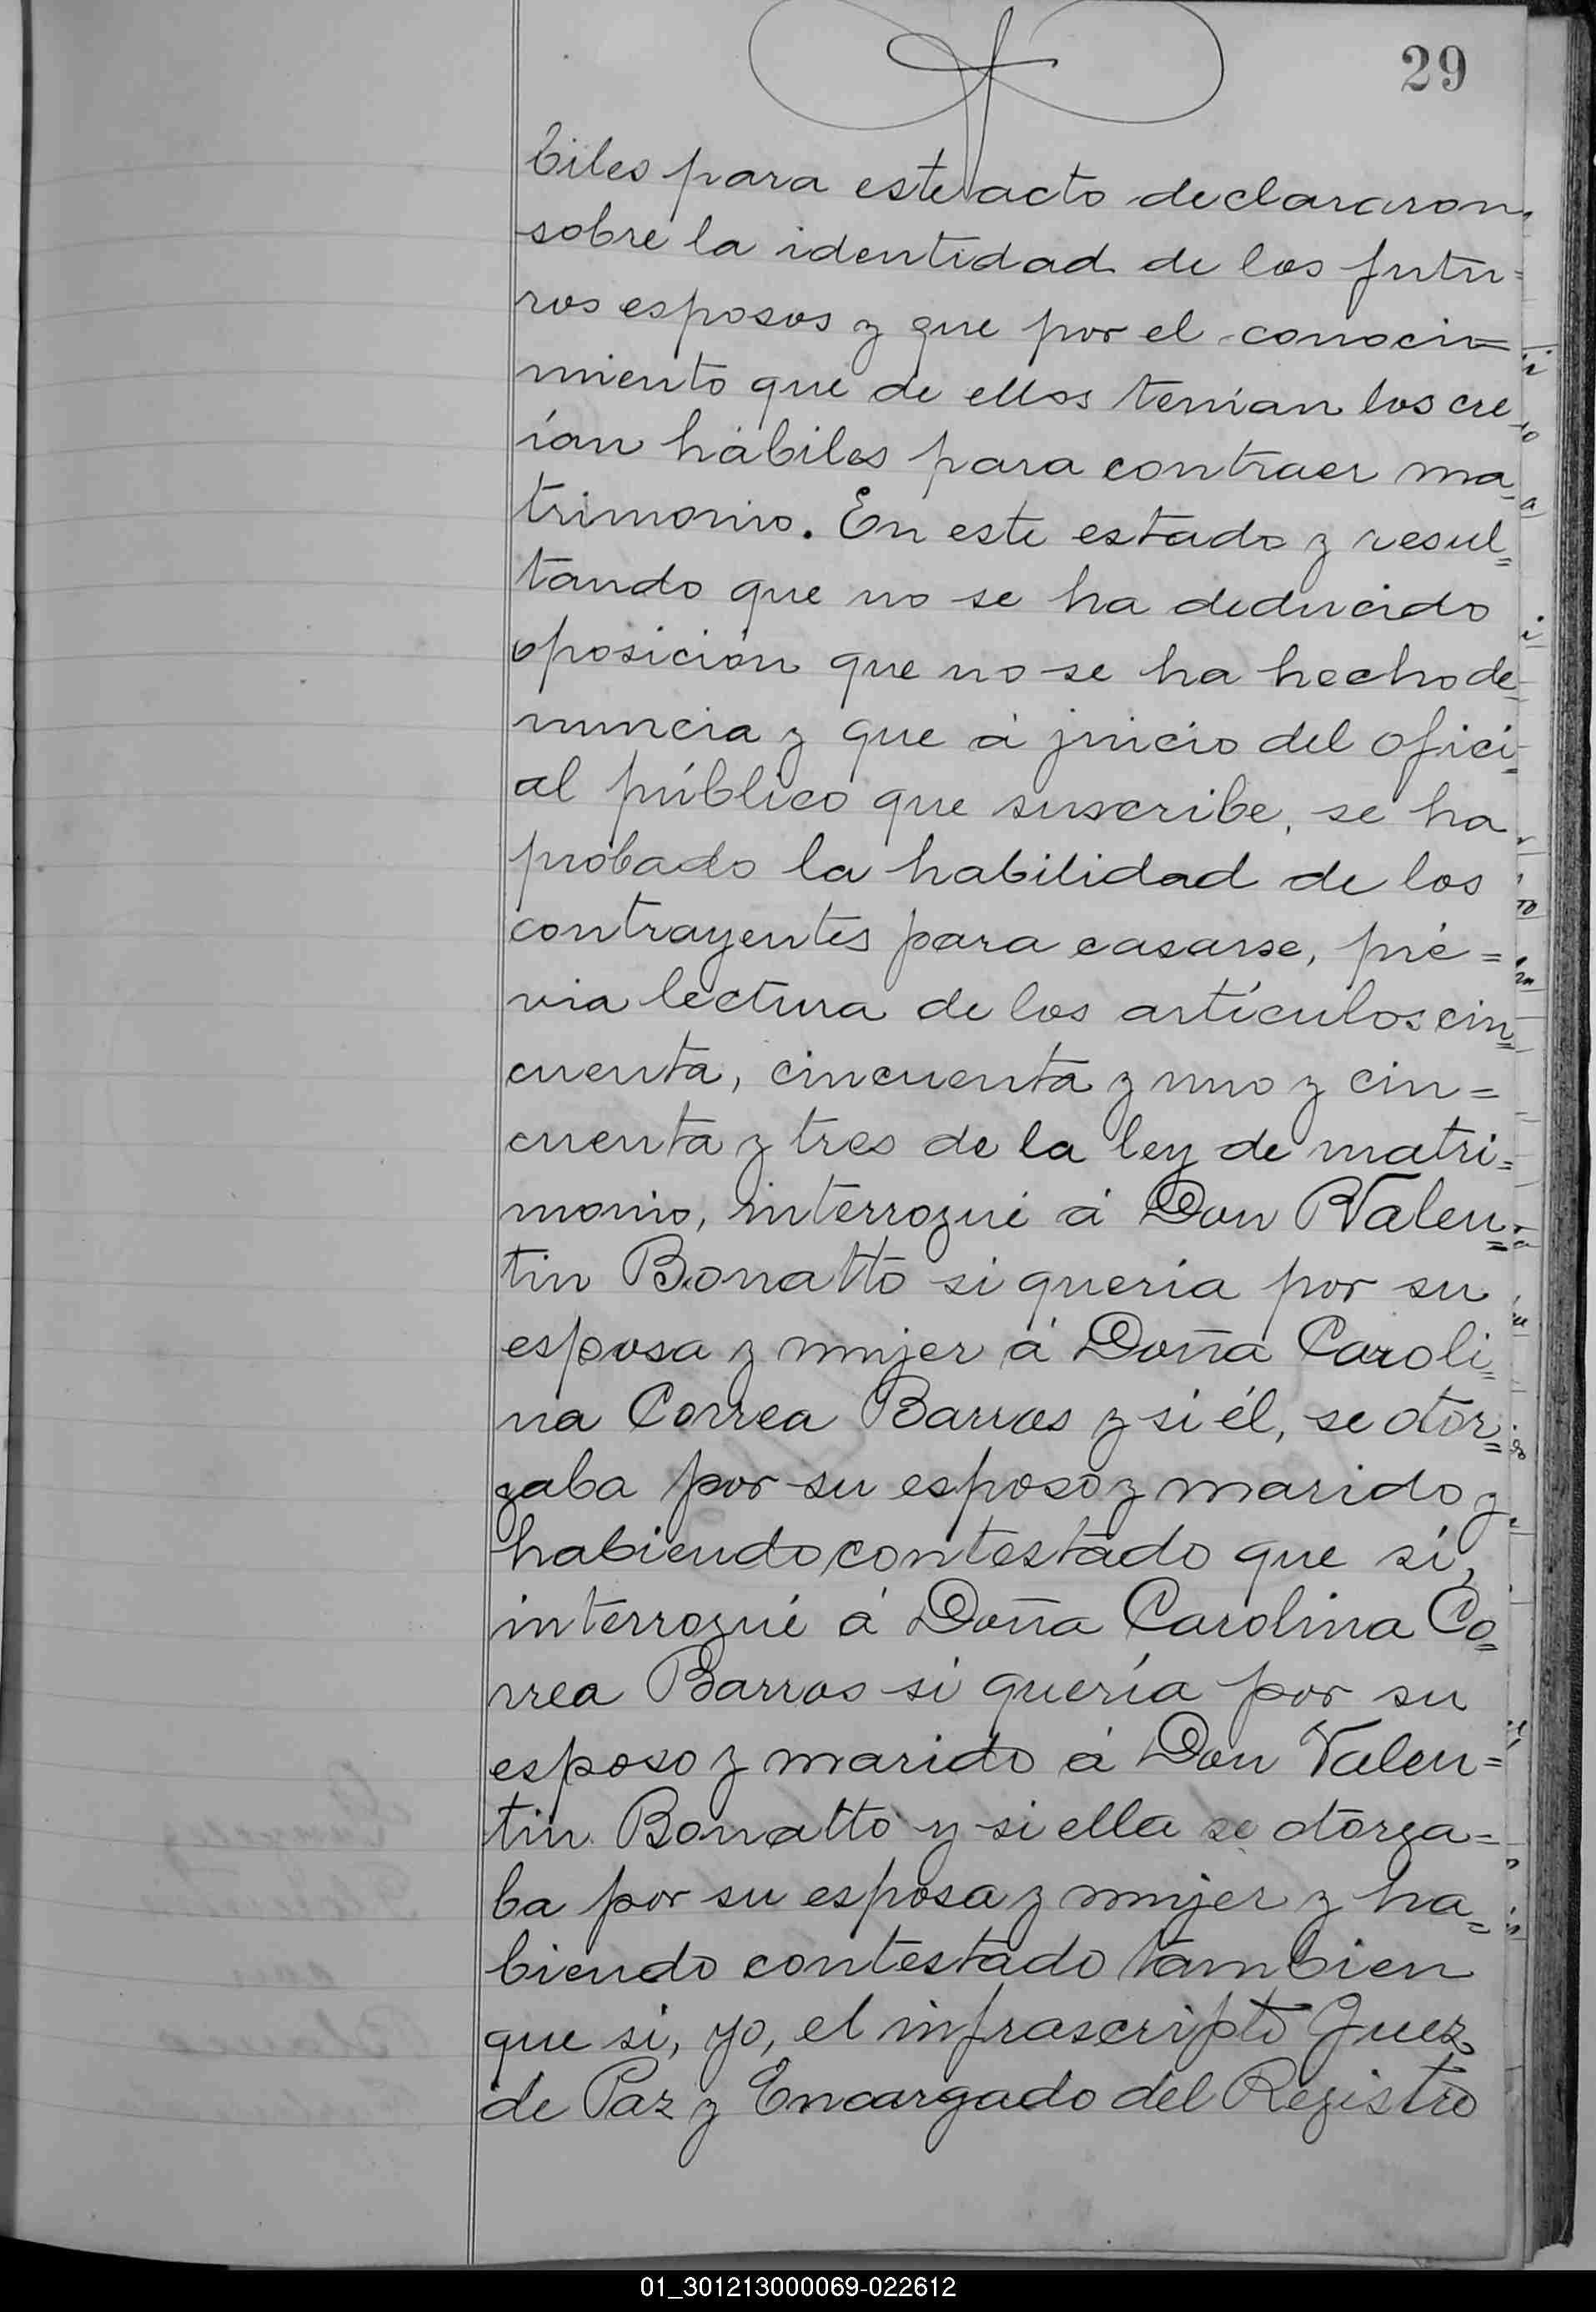 29
biles para este acto declararon
sobre la identidad de los futu=
ros esposos y que por el conoci=
miento que de ellos tenían los cre
ían hábiles para contraer ma=
trimonio. En este estado y resul=
tando que no se ha deducido
oposición que no se ha hecho de=
nuncia y que á juicio del ofici=
al público que suscribe, se ha
probado la habilidad de los
contrayentes para casarse, pré=
via lectura de los artículos cin=
cuenta, cincuenta y uno y cin=
cuenta y tres de la ley de matri=
monio, interrogué á Don Valen=
tin Bonatto si quería por su
esposa y mujer á Doña Caroli=
na Correa Barros y si él, se otor=
gaba por su esposo y marido y
habiendo contestado que sí,
interrogué á Doña Carolina Co=
rrea Barros si quería por su
esposo y marido á Don Valen=
tin Bonatto y si ella se otorga=
ba por su esposa y mujer y ha=
biendo contestado tambien
que si, yo, el infrascripto Juez
de Paz y Encargado del Registro
01_301213000069-022612